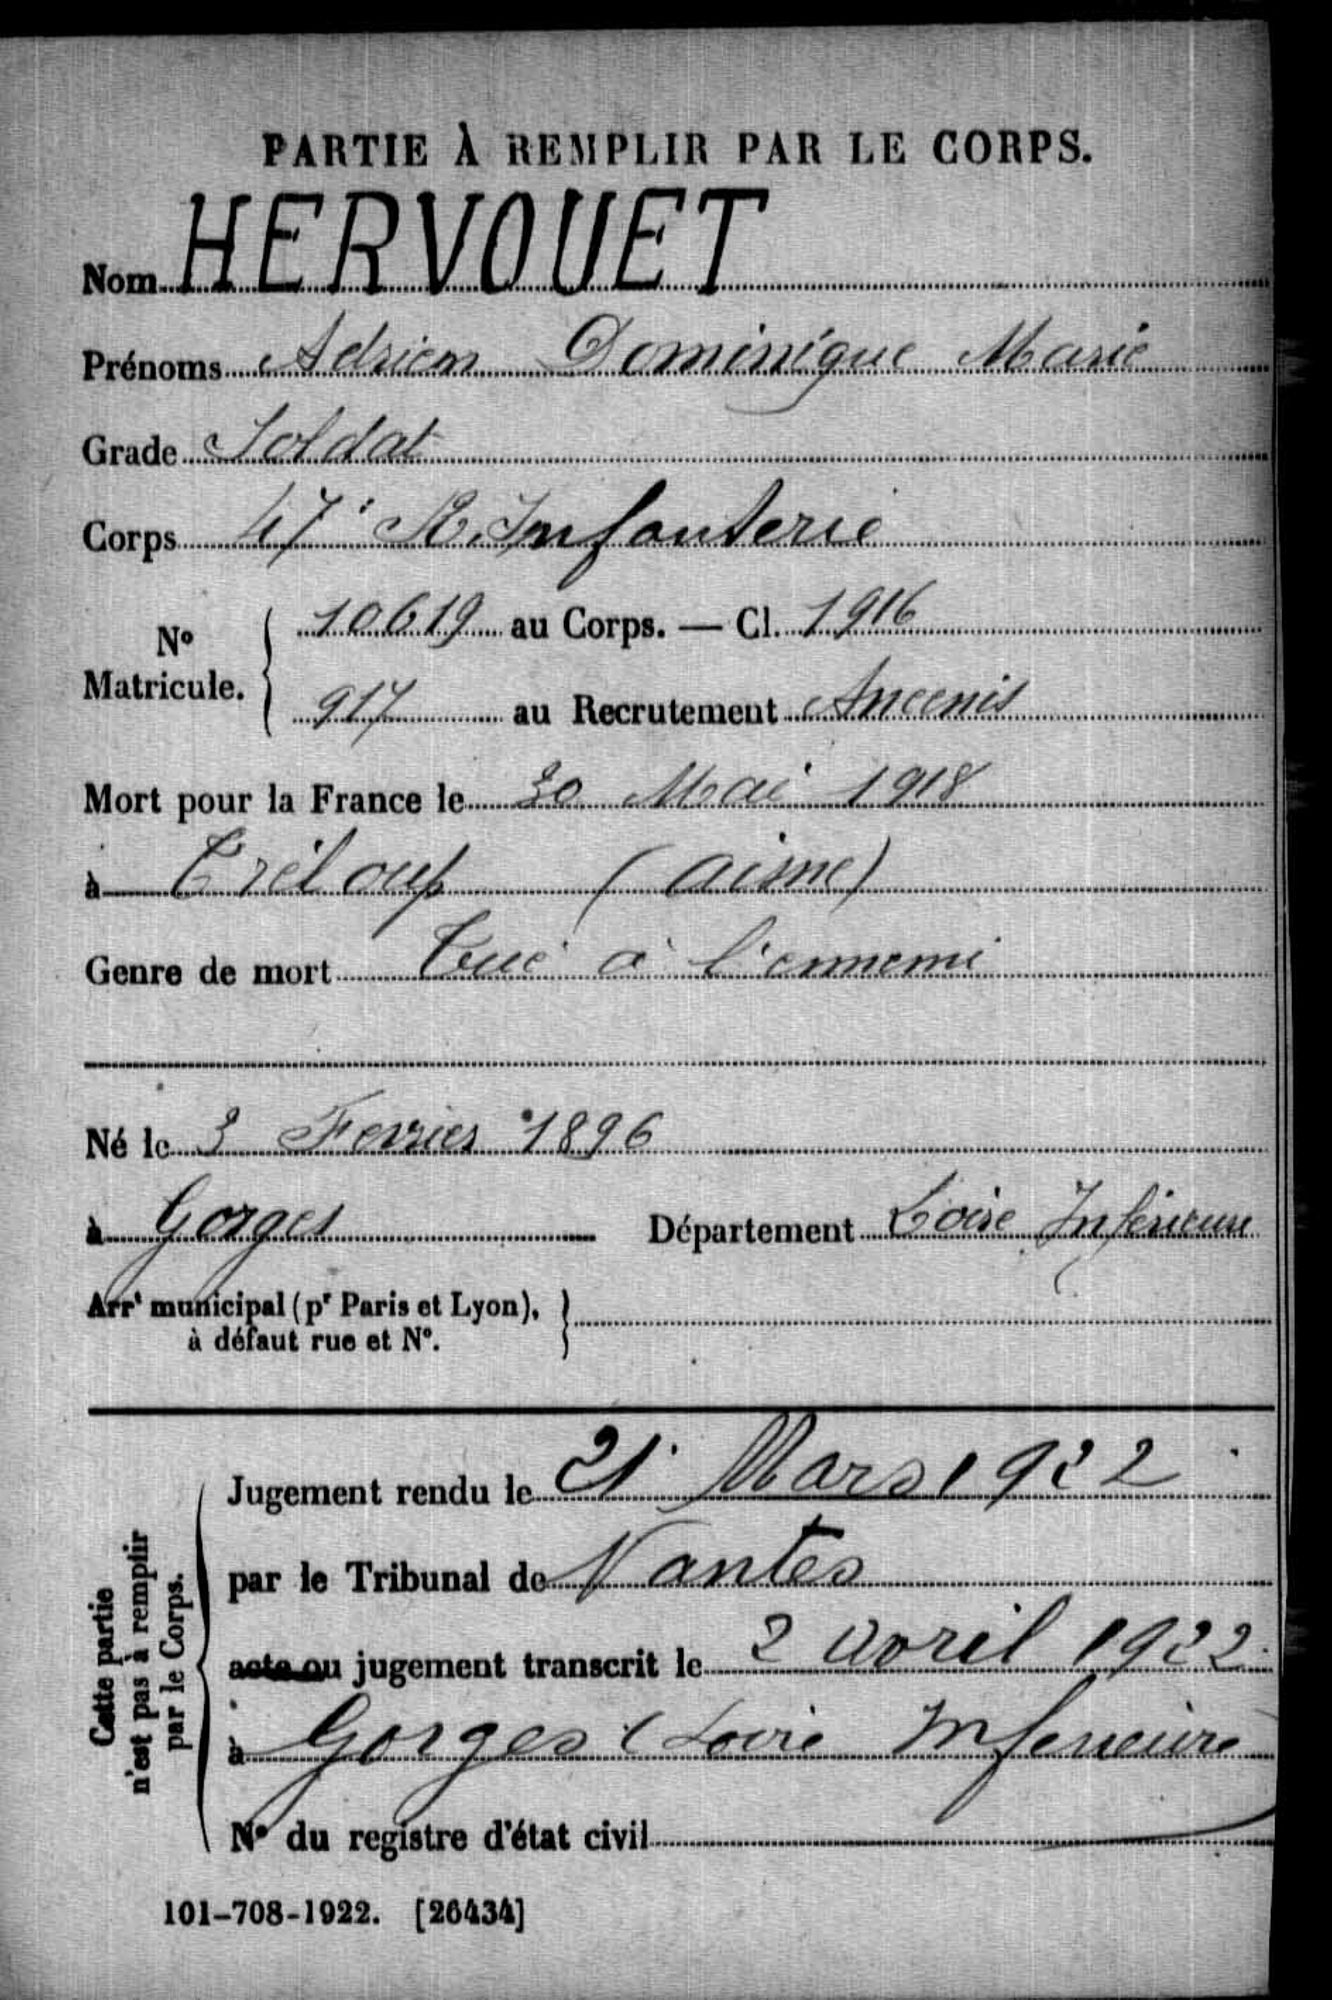 PARTIE À REMPLIR PAR LE CORPS.
Nom HERVOUET
Prénoms Adrien Dominique Marie
Grade Soldat
Corps 47e R. Infanterie
No Matricule. { 10619 au Corps. — Cl. 1916
917 au Recrutement Ancenis
Mort pour la France le 30 Mai 1918
à Tréloup (aisne)
Genre de mort Tué à l'ennemi
Né le 3 Fevrier 1896
à Gorges Département Loire Inférieure
Arrt municipal (pr Paris et Lyon), }
à défaut rue et No.
Cette partie
n'est pas à remplir
par le Corps.
Jugement rendu le 21 Mars 1922
par le Tribunal de Nantes
acte ou jugement transcrit le 2 avril 1922
à Gorges (Loire Inferieure
No du registre d'état civil
101-708-1922. [26434]